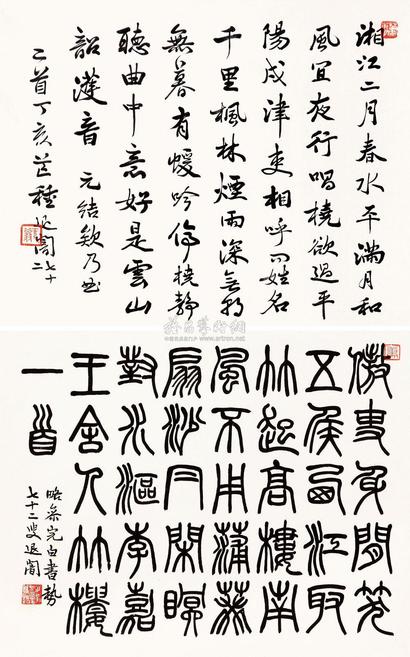 湘江二月春水平滿月和
風宜夜行唱橈欲過平
陽戍津吏相呼問姓名
千里楓林煙雨深無朝
無暮有猨吟停橈靜
聽曲中意好是雲山
韶濩音 元結欸乃曲
二首丁亥芒種退闇七十二
傲吏身閒笑
五侯西江取
竹起高樓南
風不用蒲葵
扇沙閑
對水漚李嘉
王舍人竹樓
一首
略參完白書勢
七十二叟退闇